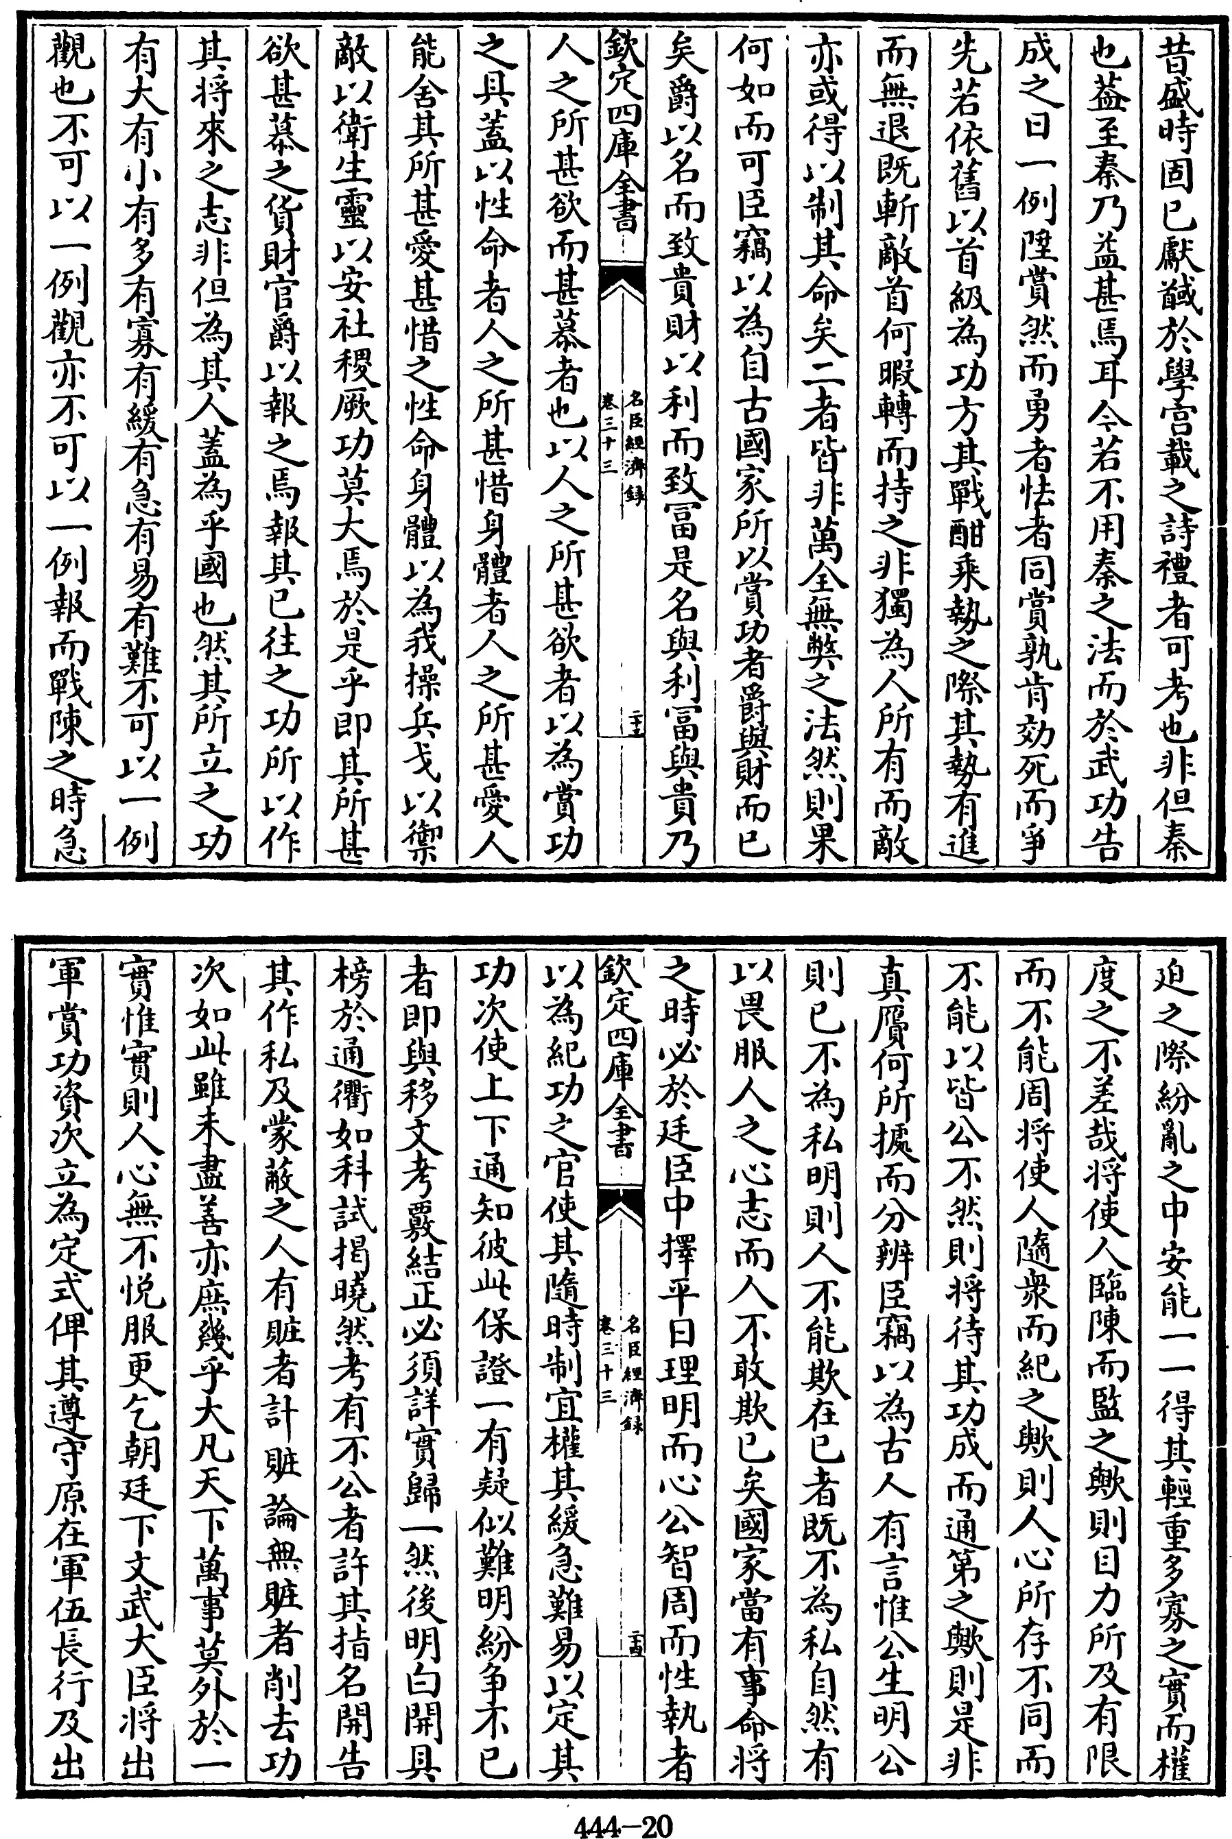 昔盛時固已獻馘於學宮載之詩禮者可考也非但秦
也葢至秦乃益甚焉耳今若不用秦之法而於武功告
成之日一例陞賞然而勇者怯者同賞孰肯効死而爭
先若依舊以首級為功方其戰酣乘勢之際其勢有進
而無退既斬敵首何暇轉而持之非獨為人所有而敵
亦或得以制其命矣二者皆非萬全無弊之法然則果
何如而可臣竊以為自古國家所以賞功者爵與財而已
矣爵以名而致貴財以利而致富是名與利富與貴乃
欽定四庫全書
名臣經濟録
卷三十三
二十三
人之所甚欲而甚慕者也以人之所甚欲者以為賞功
之具蓋以性命者人之所甚惜身體者人之所甚愛人
能舍其所甚愛甚惜之性命身體以為我操兵戈以禦
敵以衛生靈以安社稷厥功莫大焉於是乎即其所甚
欲甚慕之貨財官爵以報之焉報其已往之功所以作
其將來之志非但為其人蓋為乎國也然其所立之功
有大有小有多有寡有緩有急有易有難不可以一例
觀也不可以一例觀亦不可以一例報而戰陳之時急
迫之際紛亂之中安能一一得其輕重多寡之實而權
度之不差哉將使人臨陳而監之歟則目力所及有限
而不能周將使人隨衆而紀之歟則人心所存不同而
不能以皆公不然則將待其功成而通第之歟則是非
真贋何所據而分辨臣竊以為古人有言惟公生明公
則已不為私明則人不能欺在已者既不為私自然有
以畏服人之心志而人不敢欺已矣國家當有事命將
之時必於廷臣中擇平日理明而心公智周而性執者
欽定四庫全書
名臣經濟録
卷三十三
二十四
以為紀功之官使其隨時制宜權其緩急難易以定其
功次使上下通知彼此保證一有疑似難明紛争不已
者即與移文考覈結正必須詳實歸一然後明白開具
榜於通衢如科試揭曉然考有不公者許其指名開告
其作私及蒙蔽之人有賍者計賍論無賍者削去功
次如此雖未盡善亦庶幾乎大凡天下萬事莫外於一
實惟實則人心無不悦服更乞朝廷下文武大臣將出
軍賞功資次立為定式俾其遵守原在軍伍長行及出
444—20